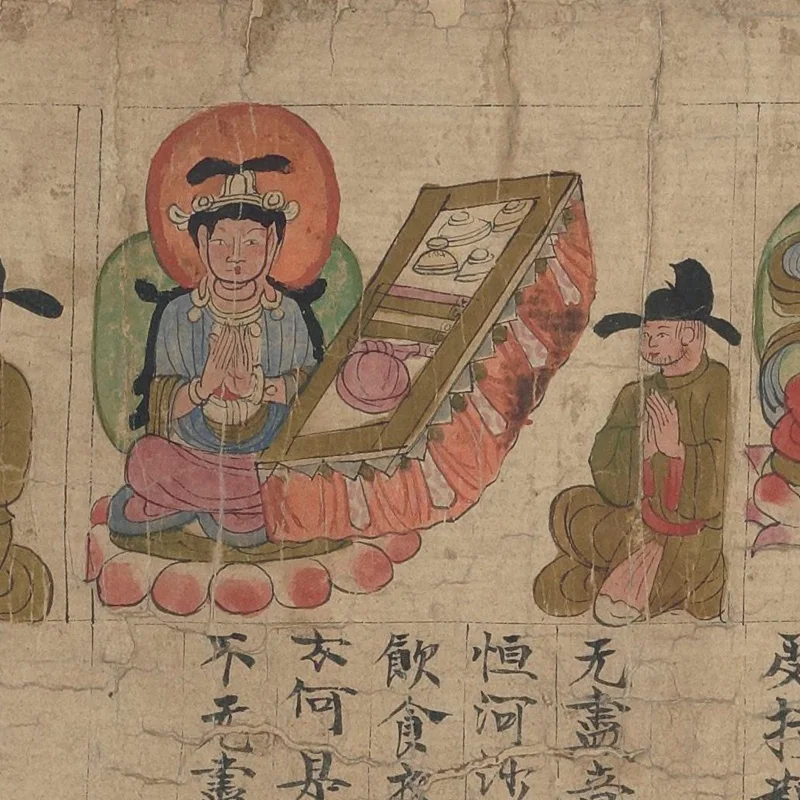 受持觀
无盡意
恒河沙
飲食
云何是
不无盡